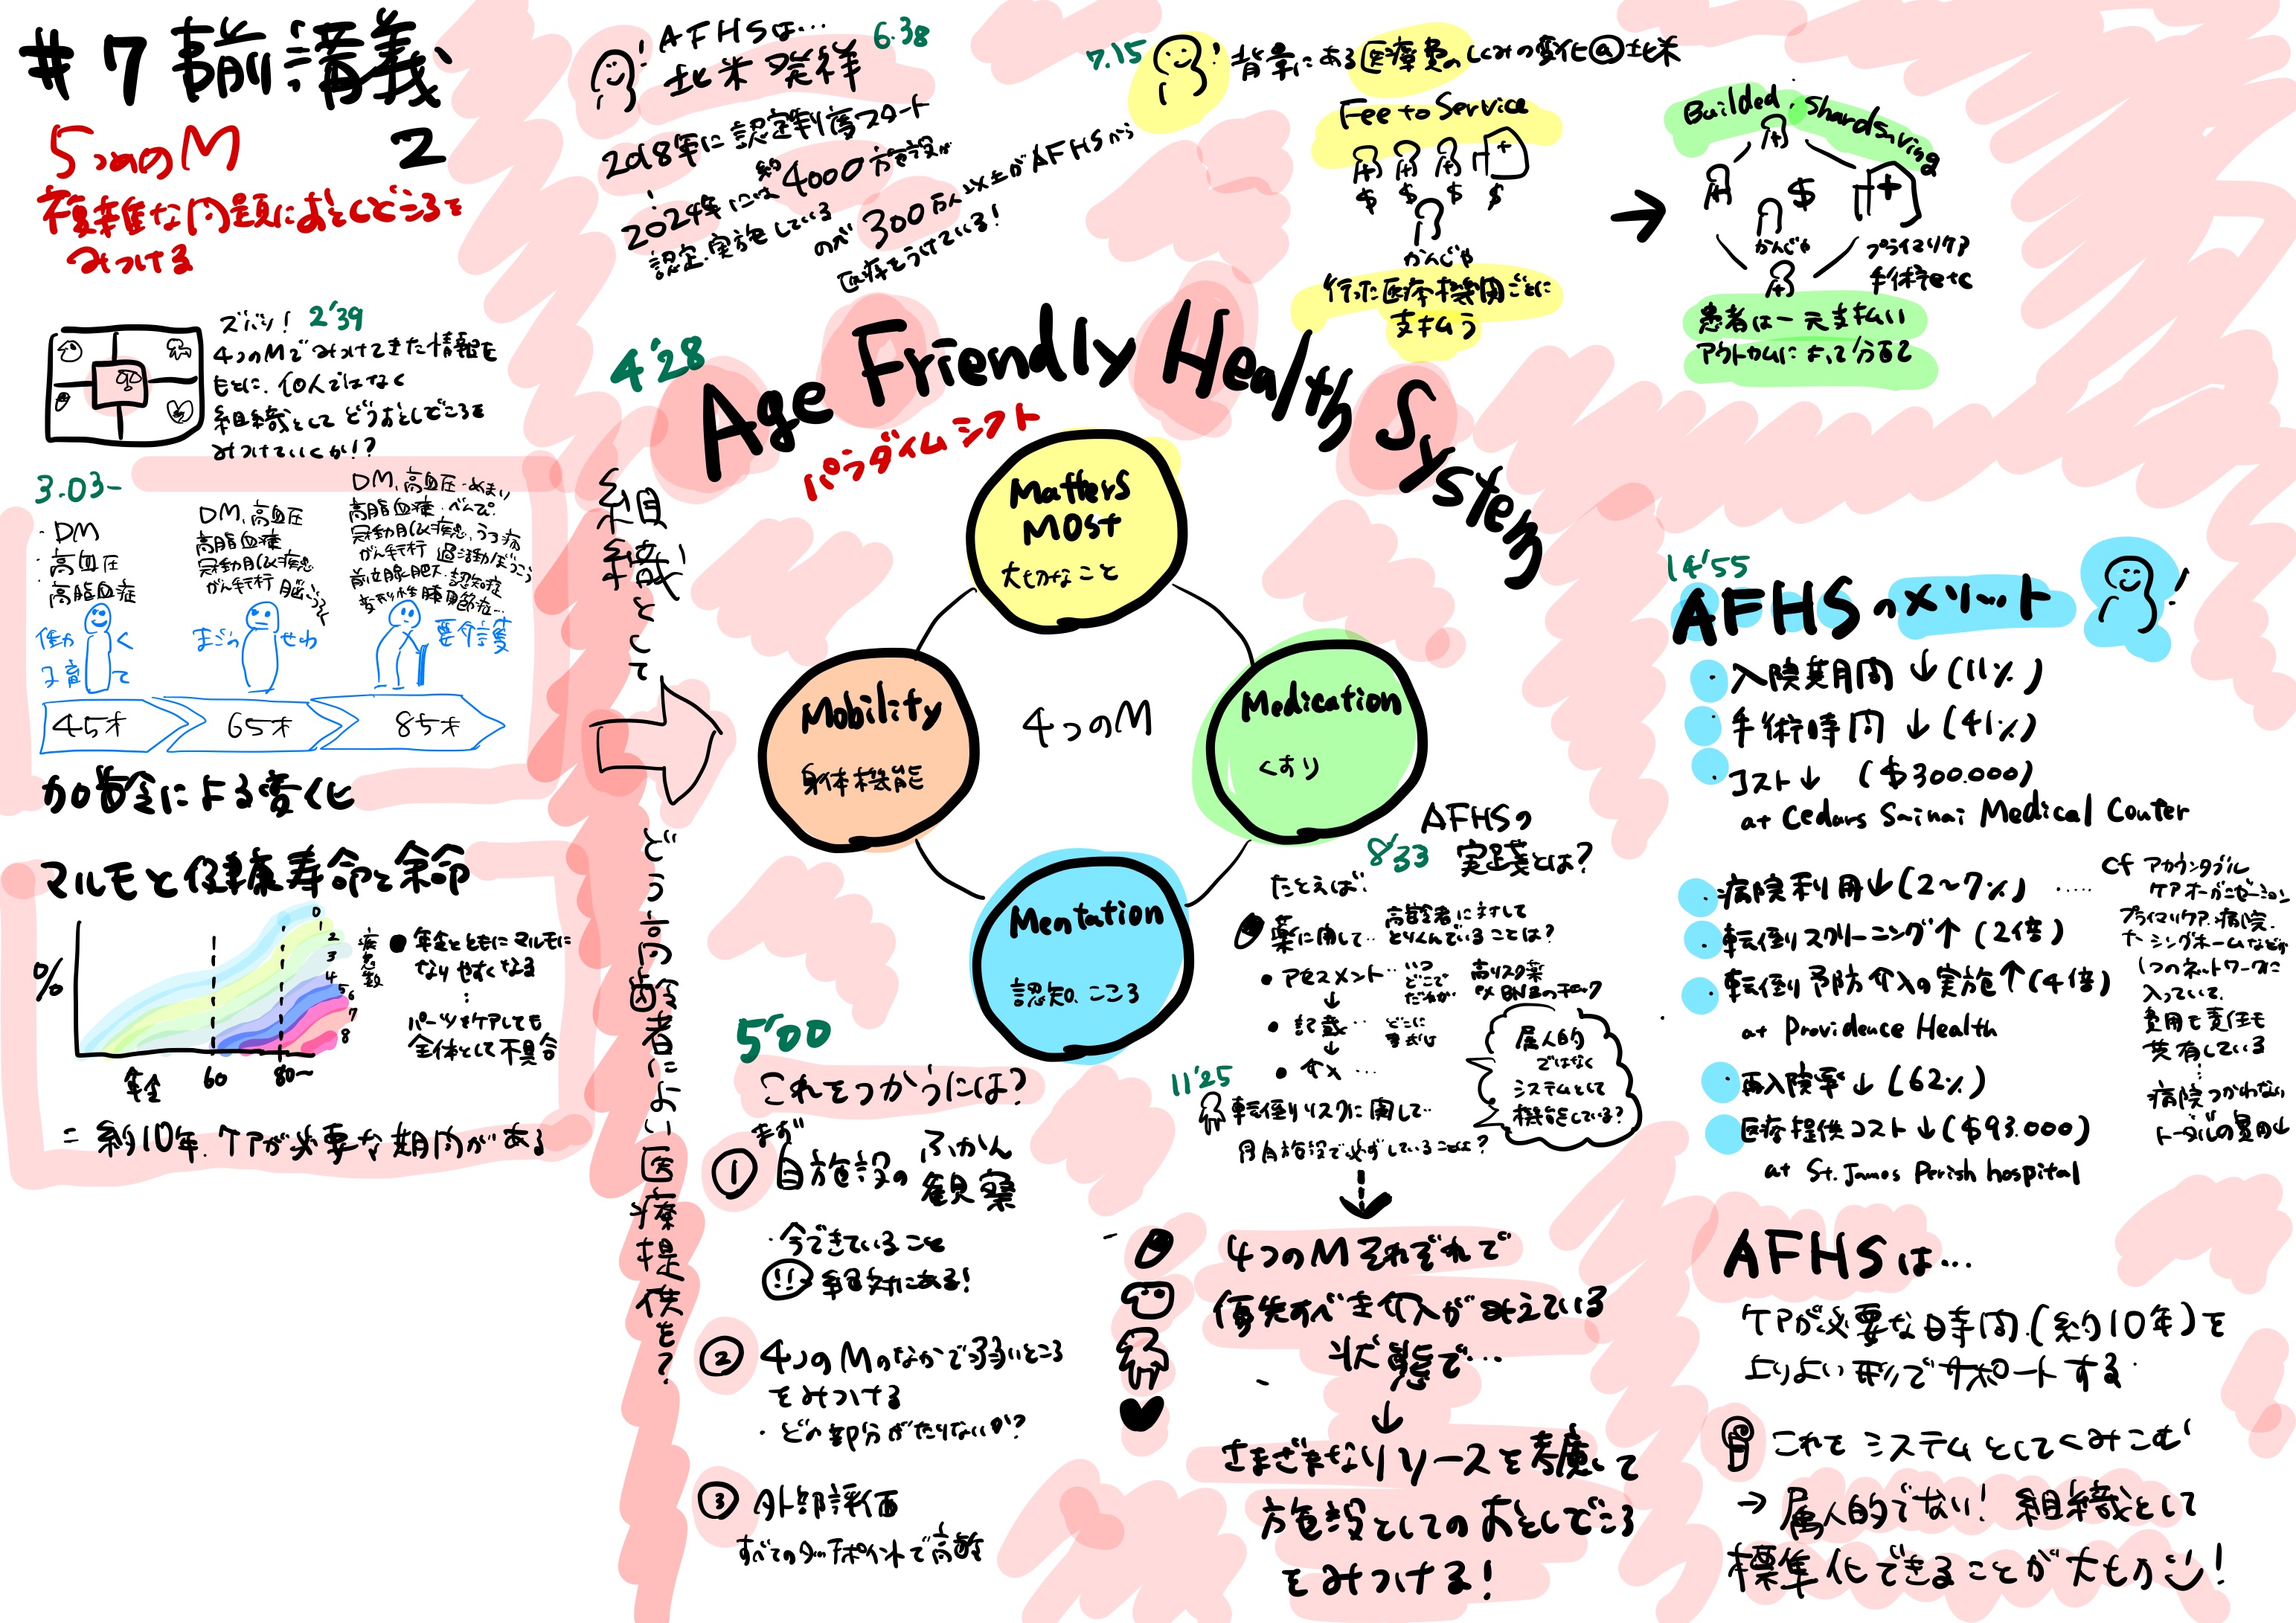 #7 事前講義
2
5つめのM
複雑な問題におとしどころを
みつける
ズバリ! 2'39
4つのMでみつけてきた情報を
もとに、個人ではなく
組織として どうおとしどころを
みつけていくか!?
3.03~
・DM
・高血圧
・高脂血症
働く
子育て
DM、高血圧
高脂血症
冠動脈疾患
がん手術
まごの せわ
DM、高血圧・めまい
高脂血症・べんぴ
冠動脈疾患、うつ病
がん手術 過活動ぼうこう
前立腺肥大・認知症
変形性膝関節症…
要介護
45才
65才
85才
加齢による変化
マルモと健康寿命と余命
%
0
1
2
3
4
5
6
7
8
疾患数
年令
60
80~
● 年令とともにマルモに
なりやすくなる
パーツをケアしても
全体として不具合
= 約10年、ケアが必要な期間がある
AFHSは…
北米発祥
6.38
2018年に認定制度スタート
2024年には 約4000施設が
認定・実施している
のべ 300万人以上がAFHSから
医療をうけている!
7.15
背景にある医療費のしくみの変化@北米
Fee to Service
$ $ $ $
かんじゃ
行った医療機関ごとに
支払う
→
Builded, shardsaving
$
かんじゃ
プライマリケア
手術etc
患者は一元支払い
アウトカムによって分配
4'28
Age Friendly Health System
パラダイムシフト
組織として
どう高齢者によい医療提供を?
Matters
MOst
大切なこと
Mobility
身体機能
4つのM
Medication
くすり
Mentation
認知、こころ
5'00
これをつかうには?
まず
① 自施設の ふかん
観察
・今できていること
絶対にある!
② 4つのMのなかで弱いところ
をみつける
・どの部分がたりないか?
③ 外部評価
すべてのタッチポイントで高齢
AFHSの
8'33 実践とは?
たとえば、
薬に関して‥ 高齢者に対して
とりくんでいることは?
● アセスメント‥ いつ
どこで
だれが
高リスク薬
↓
● 記載… どこに
書式は
↓
● 介入…
属人的
ではなく
システムとして
機能している?
11'25
転倒リスクに関して‥
自施設で必ずしていることは?
4つのMそれぞれで
優先すべき介入がみえている
状態で…
↓
さまざまなリソースを考慮して
施設としてのおとしどころ
をみつける!
14'55
AFHSのメリット
・入院期間↓(11%)
・手術時間↓(41%)
・コスト↓ ($300.000)
at Cedars Sainai Medical Center
・病院利用↓(2~7%) ‥‥
・転倒スクリーニング↑(2倍)
・転倒予防介入の実施↑(4倍)
at Providence Health
・再入院率↓(62%)
・医療提供コスト↓($93.000)
at St. James Perish hospital
cf アカウンタブル
ケアオーガニゼーション
プライマリケア、病院、
ナーシングホームなどが
1つのネットワークに
入っていて、
費用も責任も
共有している
病院つかわない
トータルの費用↓
AFHSは…
ケアが必要な時間(約10年)を
よりよい形でサポートする
これをシステムとしてくみこむ
→ 属人的でない! 組織として
標準化できることが大切!